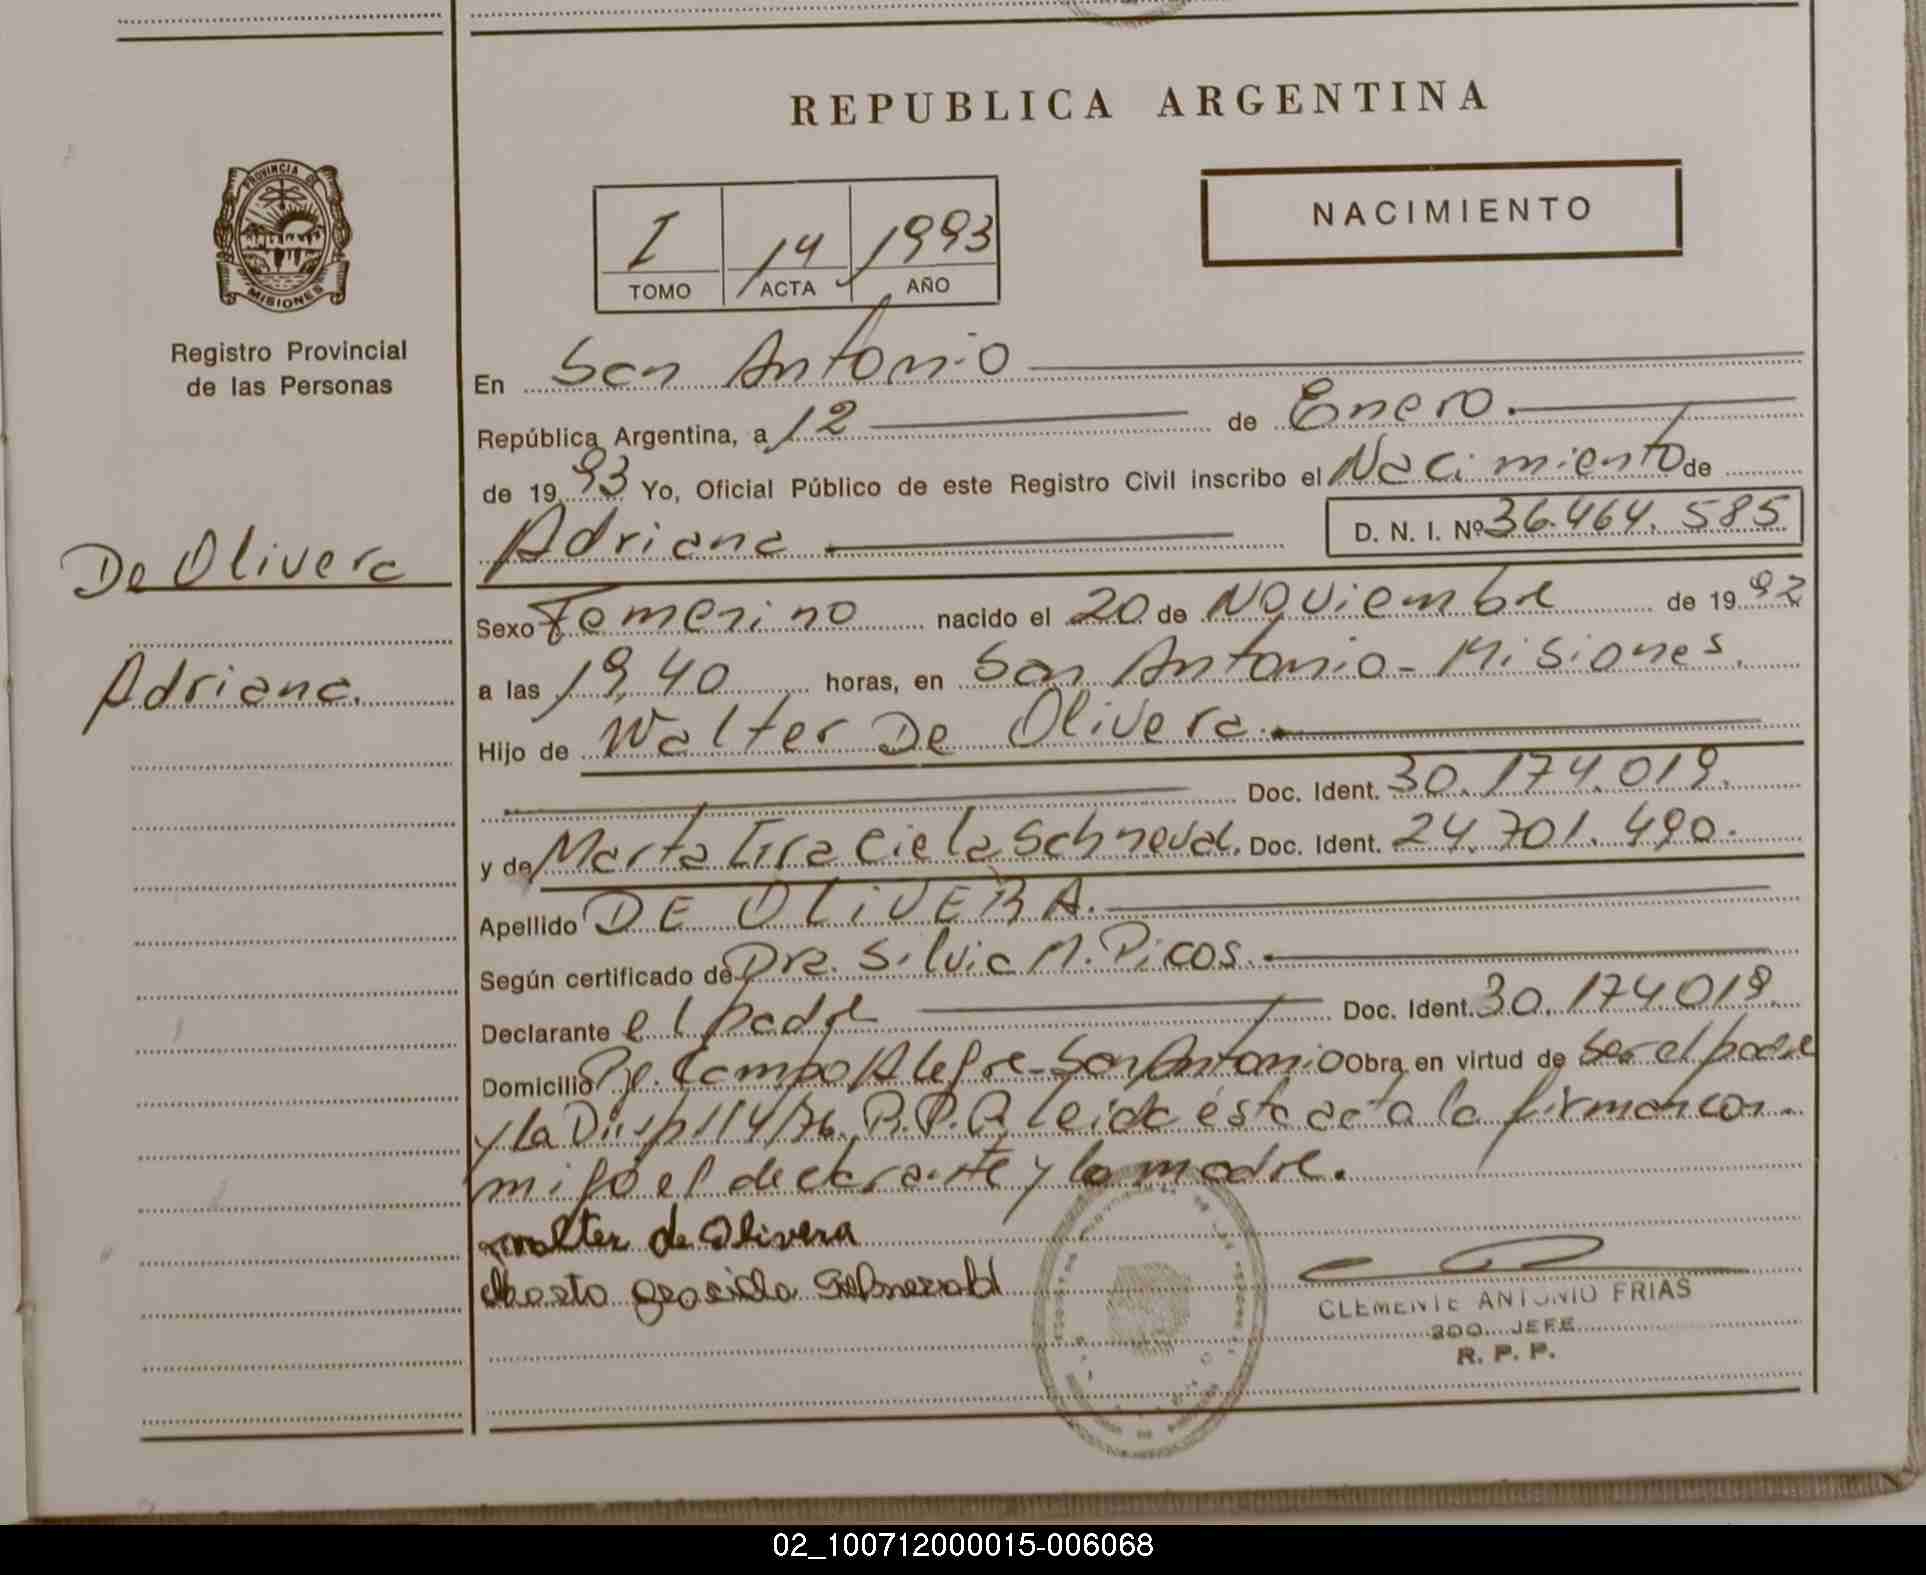 REPUBLICA ARGENTINA
PROVINCIA DE
MISIONES
Registro Provincial
de las Personas
I 14 1993
TOMO ACTA AÑO
NACIMIENTO
En San Antonio
República Argentina, a 12 de Enero.
de 1993 Yo, Oficial Público de este Registro Civil inscribo el Nacimiento de
Adriana D. N. I. Nº 36.464.585
De Olivera
Adriana.
Sexo Femenino nacido el 20 de Noviembre de 1992
a las 19,40 horas, en San Antonio - Misiones.
Hijo de Walter De Olivera.
Doc. Ident. 30.174.019.
y de Marta Graciela Schneval. Doc. Ident. 24.701.490.
Apellido DE OLIVERA.
Según certificado de Dra. Silvia M. Picos.
Declarante el padre Doc. Ident. 30.174.019.
Domicilio Pje. Campo Alegre - San Antonio Obra en virtud de ser el padre
y la Disp 114/76. R.P.P. Leida ésta acta la firman con-
migo el declarante y la madre.
walter de Olivera
Marta graciela
CLEMENTE ANTONIO FRIAS
2DO. JEFE
R. P. P.
02_100712000015-006068